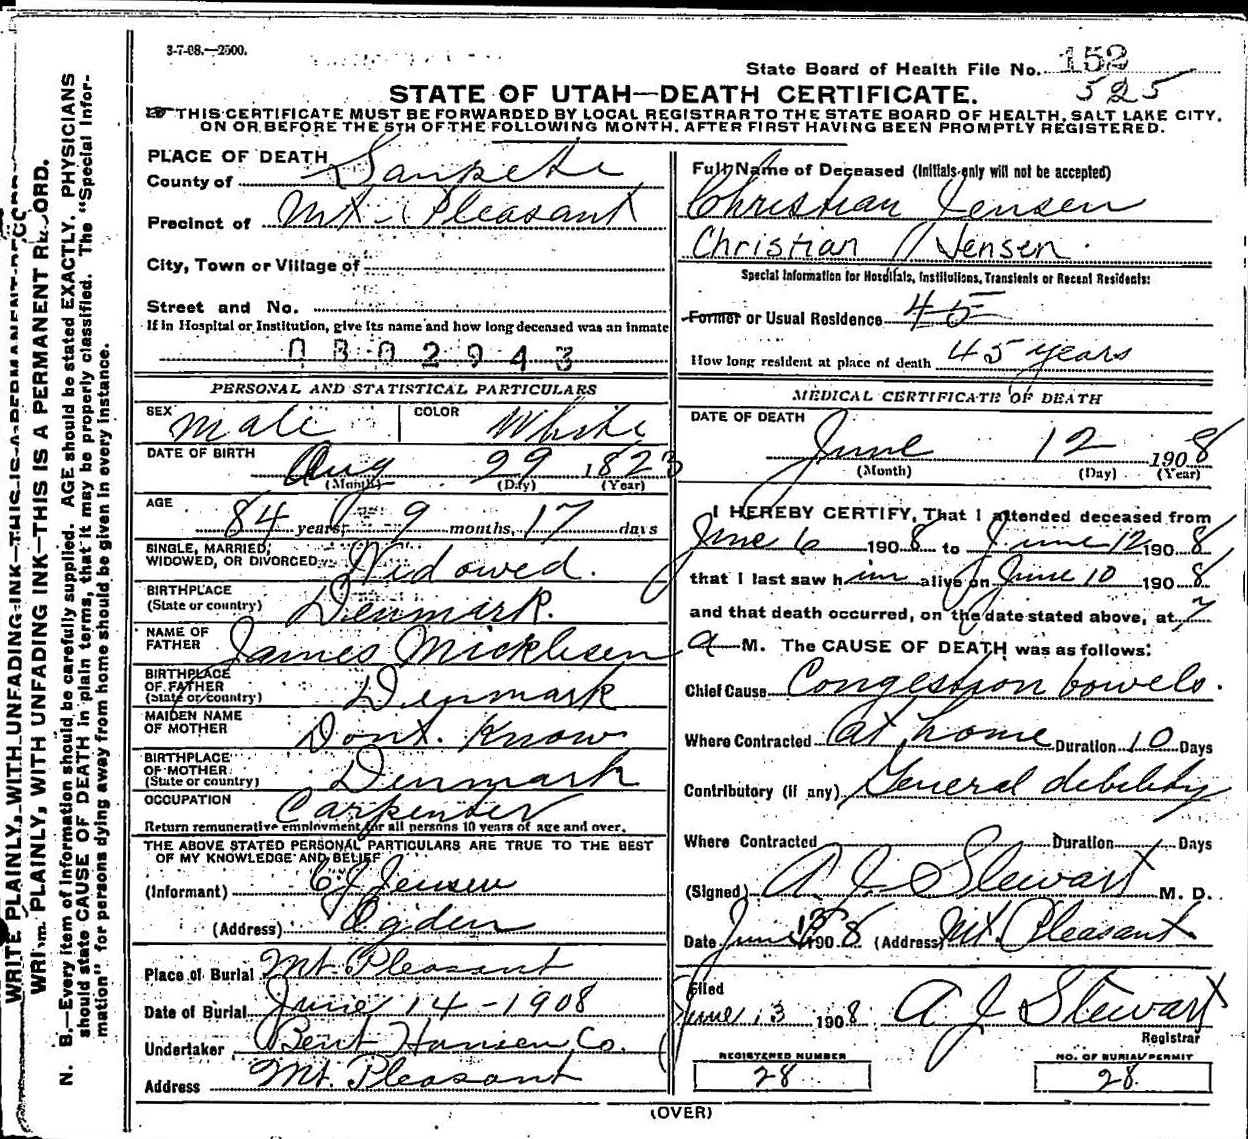 3-7-08.—2500.
State Board of Health File No. 152
525
STATE OF UTAH—DEATH CERTIFICATE.
THIS CERTIFICATE MUST BE FORWARDED BY LOCAL REGISTRAR TO THE STATE BOARD OF HEALTH, SALT LAKE CITY,
ON OR BEFORE THE 5TH OF THE FOLLOWING MONTH, AFTER FIRST HAVING BEEN PROMPTLY REGISTERED.
PLACE OF DEATH
County of Sanpete
Precinct of Mt Pleasant
City, Town or Village of
Street and No.
If in Hospital or Institution, give its name and how long deceased was an inmate
0802943
PERSONAL AND STATISTICAL PARTICULARS
SEX Male COLOR White
DATE OF BIRTH Aug 29 1823
(Month) (Day) (Year)
AGE 84 years, 9 months, 17 days
SINGLE, MARRIED,
WIDOWED, OR DIVORCED Widowed.
BIRTHPLACE
(State or country) Denmark.
NAME OF
FATHER James Micklesen
BIRTHPLACE
OF FATHER
(State or country) Denmark
MAIDEN NAME
OF MOTHER Dont. Know
BIRTHPLACE
OF MOTHER
(State or country) Denmark
OCCUPATION Carpenter
Return remunerative employment for all persons 10 years of age and over.
THE ABOVE STATED PERSONAL PARTICULARS ARE TRUE TO THE BEST
OF MY KNOWLEDGE AND BELIEF
(Informant) C J Jensen
(Address) Ogden
Place of Burial Mt. Pleasant
Date of Burial June 14-1908
Undertaker Bent Hansen Co.
Address Mt. Pleasant
Full Name of Deceased (Initials only will not be accepted)
Christian Jensen
Christian Jensen.
Special Information for Hospitals, Institutions, Transients or Recent Residents:
Former or Usual Residence 45
How long resident at place of death 45 years
MEDICAL CERTIFICATE OF DEATH
DATE OF DEATH
June 12 1908
(Month) (Day) (Year)
I HEREBY CERTIFY, That I attended deceased from
June 6 1908 to June 12 1908
that I last saw him alive on June 10 1908
and that death occurred, on the date stated above, at 7
a M. The CAUSE OF DEATH was as follows:
Chief Cause Congestion bowels.
Where Contracted at home Duration 10 Days
Contributory (if any) General debility
Where Contracted Duration Days
(Signed) A J Stewart M. D.
Date June 1908 (Address) Mt Pleasant
Filed
June 13 1908 A J Stewart
Registrar
REGISTERED NUMBER
28
NO. OF BURIAL PERMIT
28
(OVER)
WRITE PLAINLY, WITH UNFADING INK—THIS IS A PERMANENT
PLAINLY, WITH UNFADING INK—THIS IS A PERMANENT RECORD.
N. B.—Every item of information should be carefully supplied. AGE should be stated EXACTLY. PHYSICIANS
should state CAUSE OF DEATH in plain terms, that it may be properly classified. The "Special Infor-
mation" for persons dying away from home should be given in every instance.